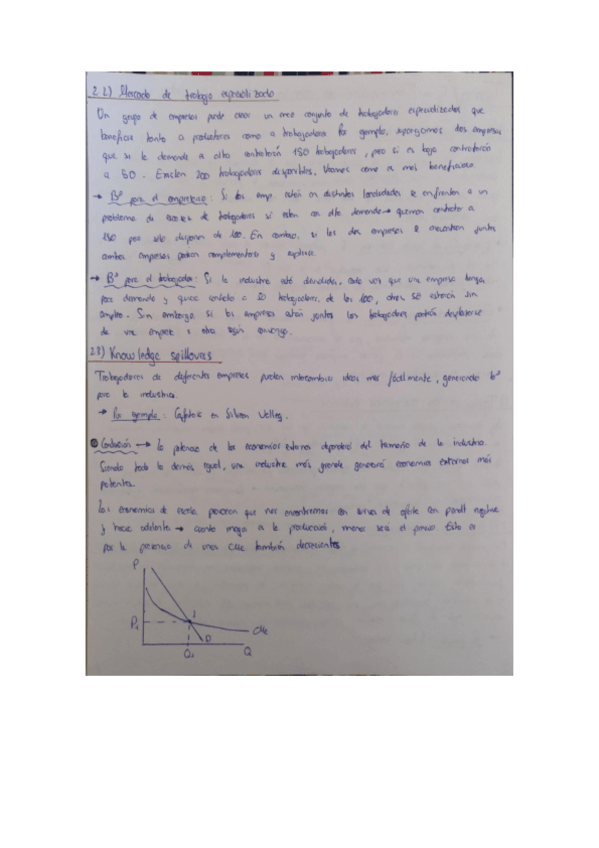 2.2) Mercado de trabajo especializado
Un grupo de empresas puede crear un area conjunto de trabajadores especializados que
beneficie tanto a productores como a trabajadores. Por ejemplo, supongamos dos empresas
que si la demanda es alta contratarán 150 trabajadores, pero si es baja contratarán
a 50. Existen 200 trabajadores disponibles, veamos como es más beneficioso
→ Bº para el empresario: Si las emp. están en distintas localidades se enfrentan a un
problema de escasez de trabajadores si estan con alta demanda → quieren contratar a
150 pero sólo disponen de 100. En cambio, si las dos empresas se encuentran juntas
ambas empresas podrán complementarse y
→ Bº para el trabajador: Si la industria está dividida, cada vez que una empresa tenga
poca demanda y quiera contratar a 50 trabajadores, de los 100, otros 50 estarán sin
empleo. Sin embargo, si las empresas están juntas los trabajadores podrán desplazarse
de una empresa a otra según convenga.
2.3) Knowledge spillovers
Trabajadores de diferentes empresas puedan intercambiar ideas más fácilmente, generando bº
para la industria.
→ Por ejemplo: Cafeterías en Silicon Valley.
Conclusión → la potencia de las economías externas dependerá del tamaño de la industria.
Siendo todo lo demás igual, una industria más grande generará economías externas más
potentes.
Las economías de escala provocan que nos encontremos con curvas de oferta con pendt negativa
y hacia adelante → cuanto mayor es la producción, menor será el precio. Esto es
por la presencia de unos CMe también decrecientes.
P
1
P₁
CMe
D
Q₁ Q